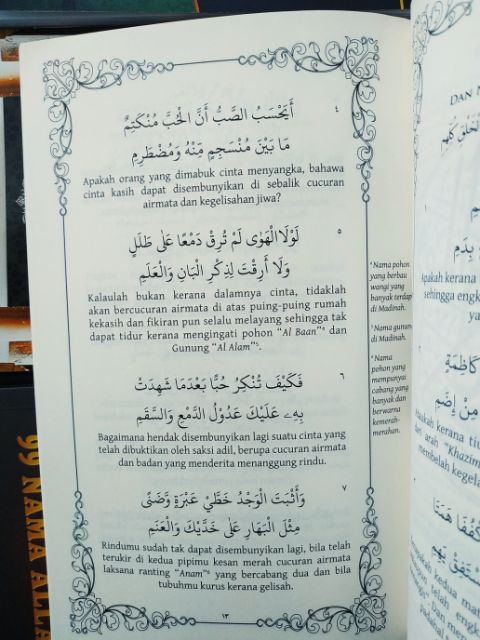 ٤
أَيَحْسَبُ الصَّبُّ أَنَّ الْحُبَّ مُنْكَتِمٌ
مَا بَيْنَ مُنْسَجِمٍ مِنْهُ وَمُضْطَرِمِ
Apakah orang yang dimabuk cinta menyangka, bahawa
cinta kasih dapat disembunyikan di sebalik cucuran
airmata dan kegelisahan jiwa?
٥
لَوْلَا الْهَوٰى لَمْ تُرِقْ دَمْعًا عَلَى طَلَلٍ
وَلَا أَرِقْتَ لِذِكْرِ الْبَانِ وَالْعَلَمِ
Kalaulah bukan kerana dalamnya cinta, tidaklah
akan bercucuran airmata di atas puing-puing rumah
kekasih dan fikiran pun selalu melayang sehingga tak
dapat tidur kerana mengingati pohon "Al Baan"⁴ dan
Gunung "Al Alam"⁵.
٦
فَكَيْفَ تُنْكِرُ حُبًّا بَعْدَمَا شَهِدَتْ
بِهِۦ عَلَيْكَ عَدُوْلُ الدَّمْعِ وَالسَّقَمِ
Bagaimana hendak disembunyikan lagi suatu cinta yang
telah dibuktikan oleh saksi adil, berupa cucuran airmata
dan badan yang menderita menanggung rindu.
٧
وَأَثْبَتَ الْوَجْدُ خَطَّيْ عَبْرَةٍ وَّضَنًى
مِثْلَ الْبَهَارِ عَلَى خَدَّيْكَ وَالْعَنَمِ
Rindumu sudah tak dapat disembunyikan lagi, bila telah
terukir di kedua pipimu kesan merah cucuran airmata
laksana ranting "Anam"⁶ yang bercabang dua dan bila
tubuhmu kurus kerana gelisah.
⁴ Nama pohon
yang berbau
wangi yang
banyak terdapat
di Madinah.
⁵ Nama gunung
di Madinah.
⁶ Nama
pohon yang
mempunyai
cabang yang
banyak dan
berwarna
kemerah-
merahan.
١٣
99 NAMA ALLA
DAN
Apakah kerana
sehingga engk
كَاظِمَةٍ
مِنْ إِضَمِ
kerana
arah "Khazim
membelah kegela
kedua mat
telah eng
Dan mer
padahal